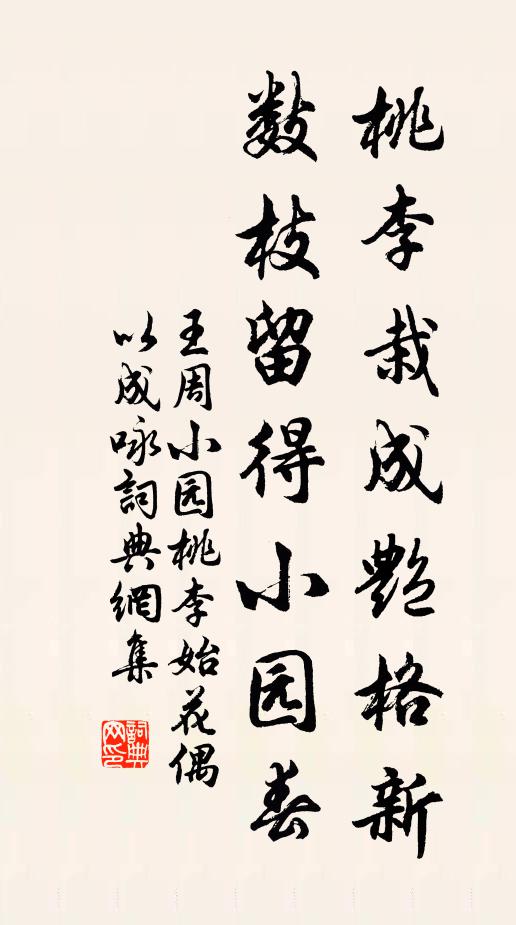 桃李栽成艳格新
数枝留得小园春
王周小园桃李始花偶
以成咏詞典網集
詞典网印